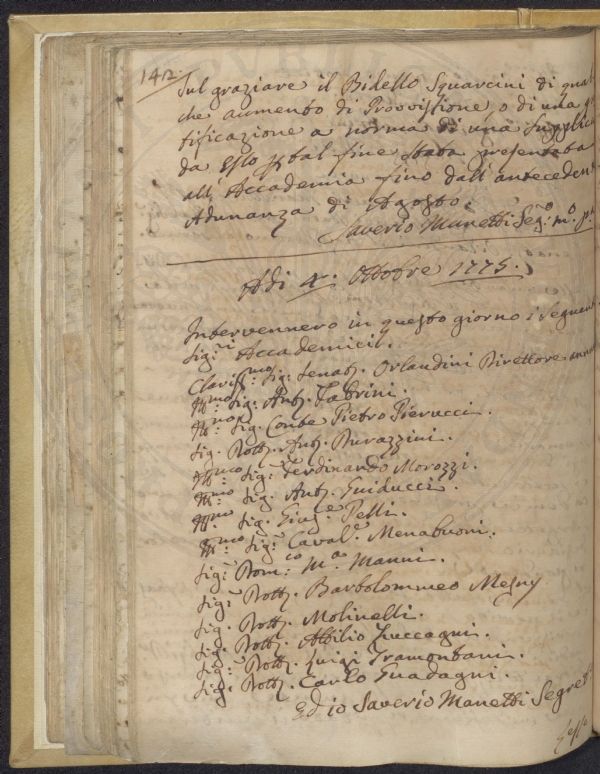 142.
Sul graziare il Bidello Squarcini di qual
che aumento di Provvissione o di una gr
tificazione a norma di una Supplica
da Esso p tal fine stata presentata
all' Accademia fino dall' anteceden
Adunanza di Agosto.
Saverio Manetti Seg.º m.º pp
Adi 4. Ottobre 1775.
Intervennero in questo giorno i Seguent
Sig.ri Accademici.
Clariss.mo Sig. Senat. Orlandini Direttore annu
Ill.mo Sig. Ant. Fabrini.
Ill.mo Sig. Conte Pietro Pierucci.
Sig. Dott. Ant. Durazzini.
Ill.mo Sig. Ferdinando Morozzi.
Ill.mo Sig. Ant. Guiducci.
Ill.mo Sig. Gius.e Pelli.
Ill.mo Sig.r Caval.e Menabuoni.
Sig.r Dom.co M.a Manni.
Sig.r Dott. Bartolommeo Mesny
Sig. Dott. Molinelli.
Sig. Dott. Attilio Zuccagni.
Sig.r Dott. Luigi Tramontani.
Sig. Dott. Carlo Guadagni.
Ed io Saverio Manetti Segret